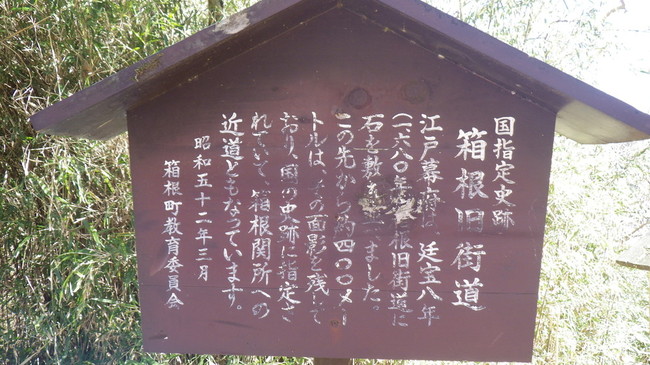 国指定史跡
箱根旧街道
江戸幕府は、延宝八年
(一六八〇年)箱根旧街道に
石を敷きました。
この先から約四〇〇メー
トルは、その面影を残して
おり、国の史跡に指定さ
れていて、箱根関所への
近道ともなっています。
昭和五十二年三月
箱根町教育委員会